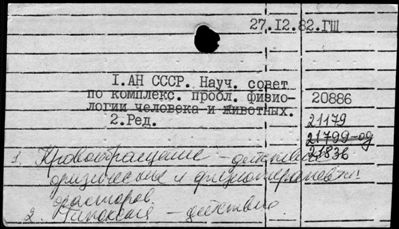 27.12.82.ГШ
1.АН СССР. Науч. совет
по комплекс. пробл. физио-
логии человека и животных.
20886
2.Ред.
21179
21799-од
21836
1. Кровообращение - действие
физические и физиотерапевт.
факторов
2. Гипоксия - действие